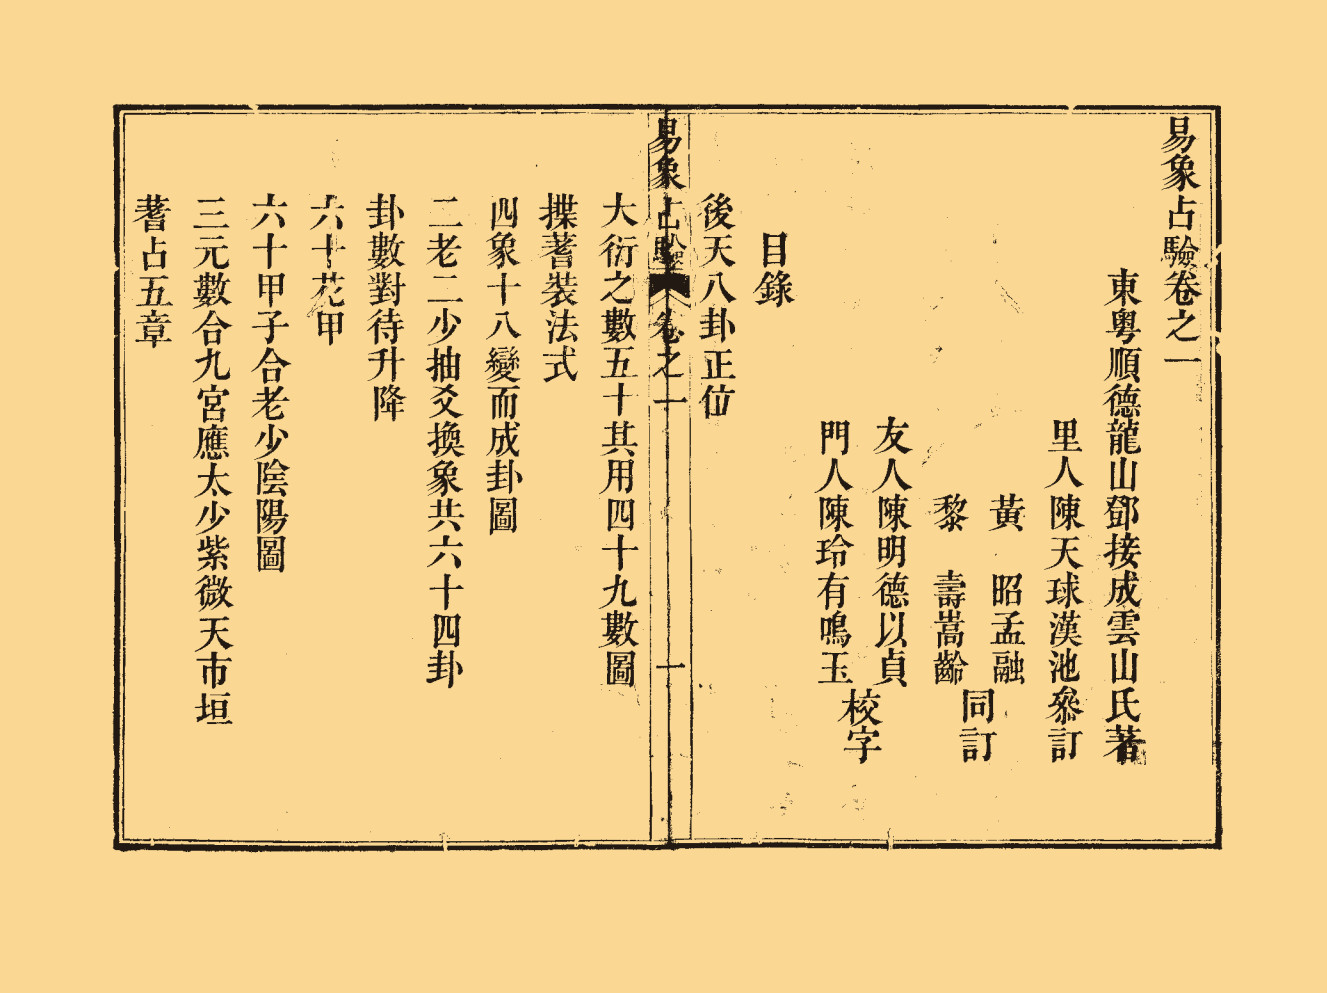 易象占驗卷之一
東粵順德龍山鄧接成雲山氏著
里人陳天球漢池叅訂
黃 昭孟融
黎 壽嵩齡
同訂
友人陳明德以貞
門人陳玲有鳴玉
校字
目錄
後天八卦正位
易象占驗 卷之一 一
大衍之數五十其用四十九數圖
揲蓍裝法式
四象十八變而成卦圖
二老二少抽爻換象共六十四卦
卦數對待升降
六十花甲
六十甲子合老少陰陽圖
三元數合九宮應太少紫微天市垣
蓍占五章